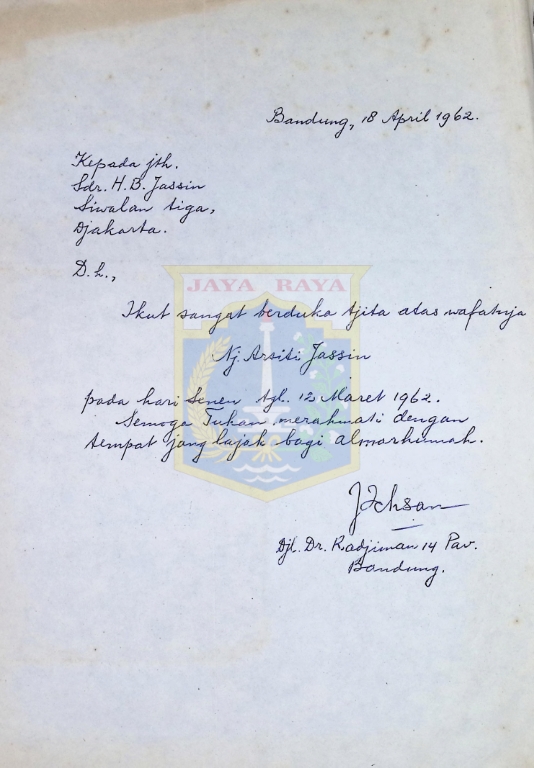 Bandung, 18 April 1962.
Kepada jth.
Sdr. H. B. Jassin
Siwalan tiga,
Djakarta.
D. h.,
JAYA RAYA
Ikut sangat berduka tjita atas wafatnja
Nj. Arsiti Jassin
pada hari Senen tgl. 12 Maret 1962.
Semoga Tuhan merahmati dengan
tempat jang lajak bagi almarhumah.
Ichsan
Djl. Dr. Radjiman 14 Pav.
Bandung.